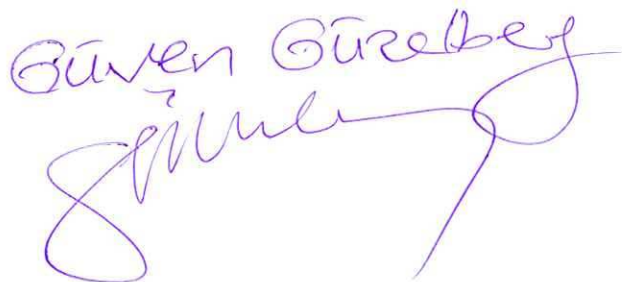 Güven Güzelbey